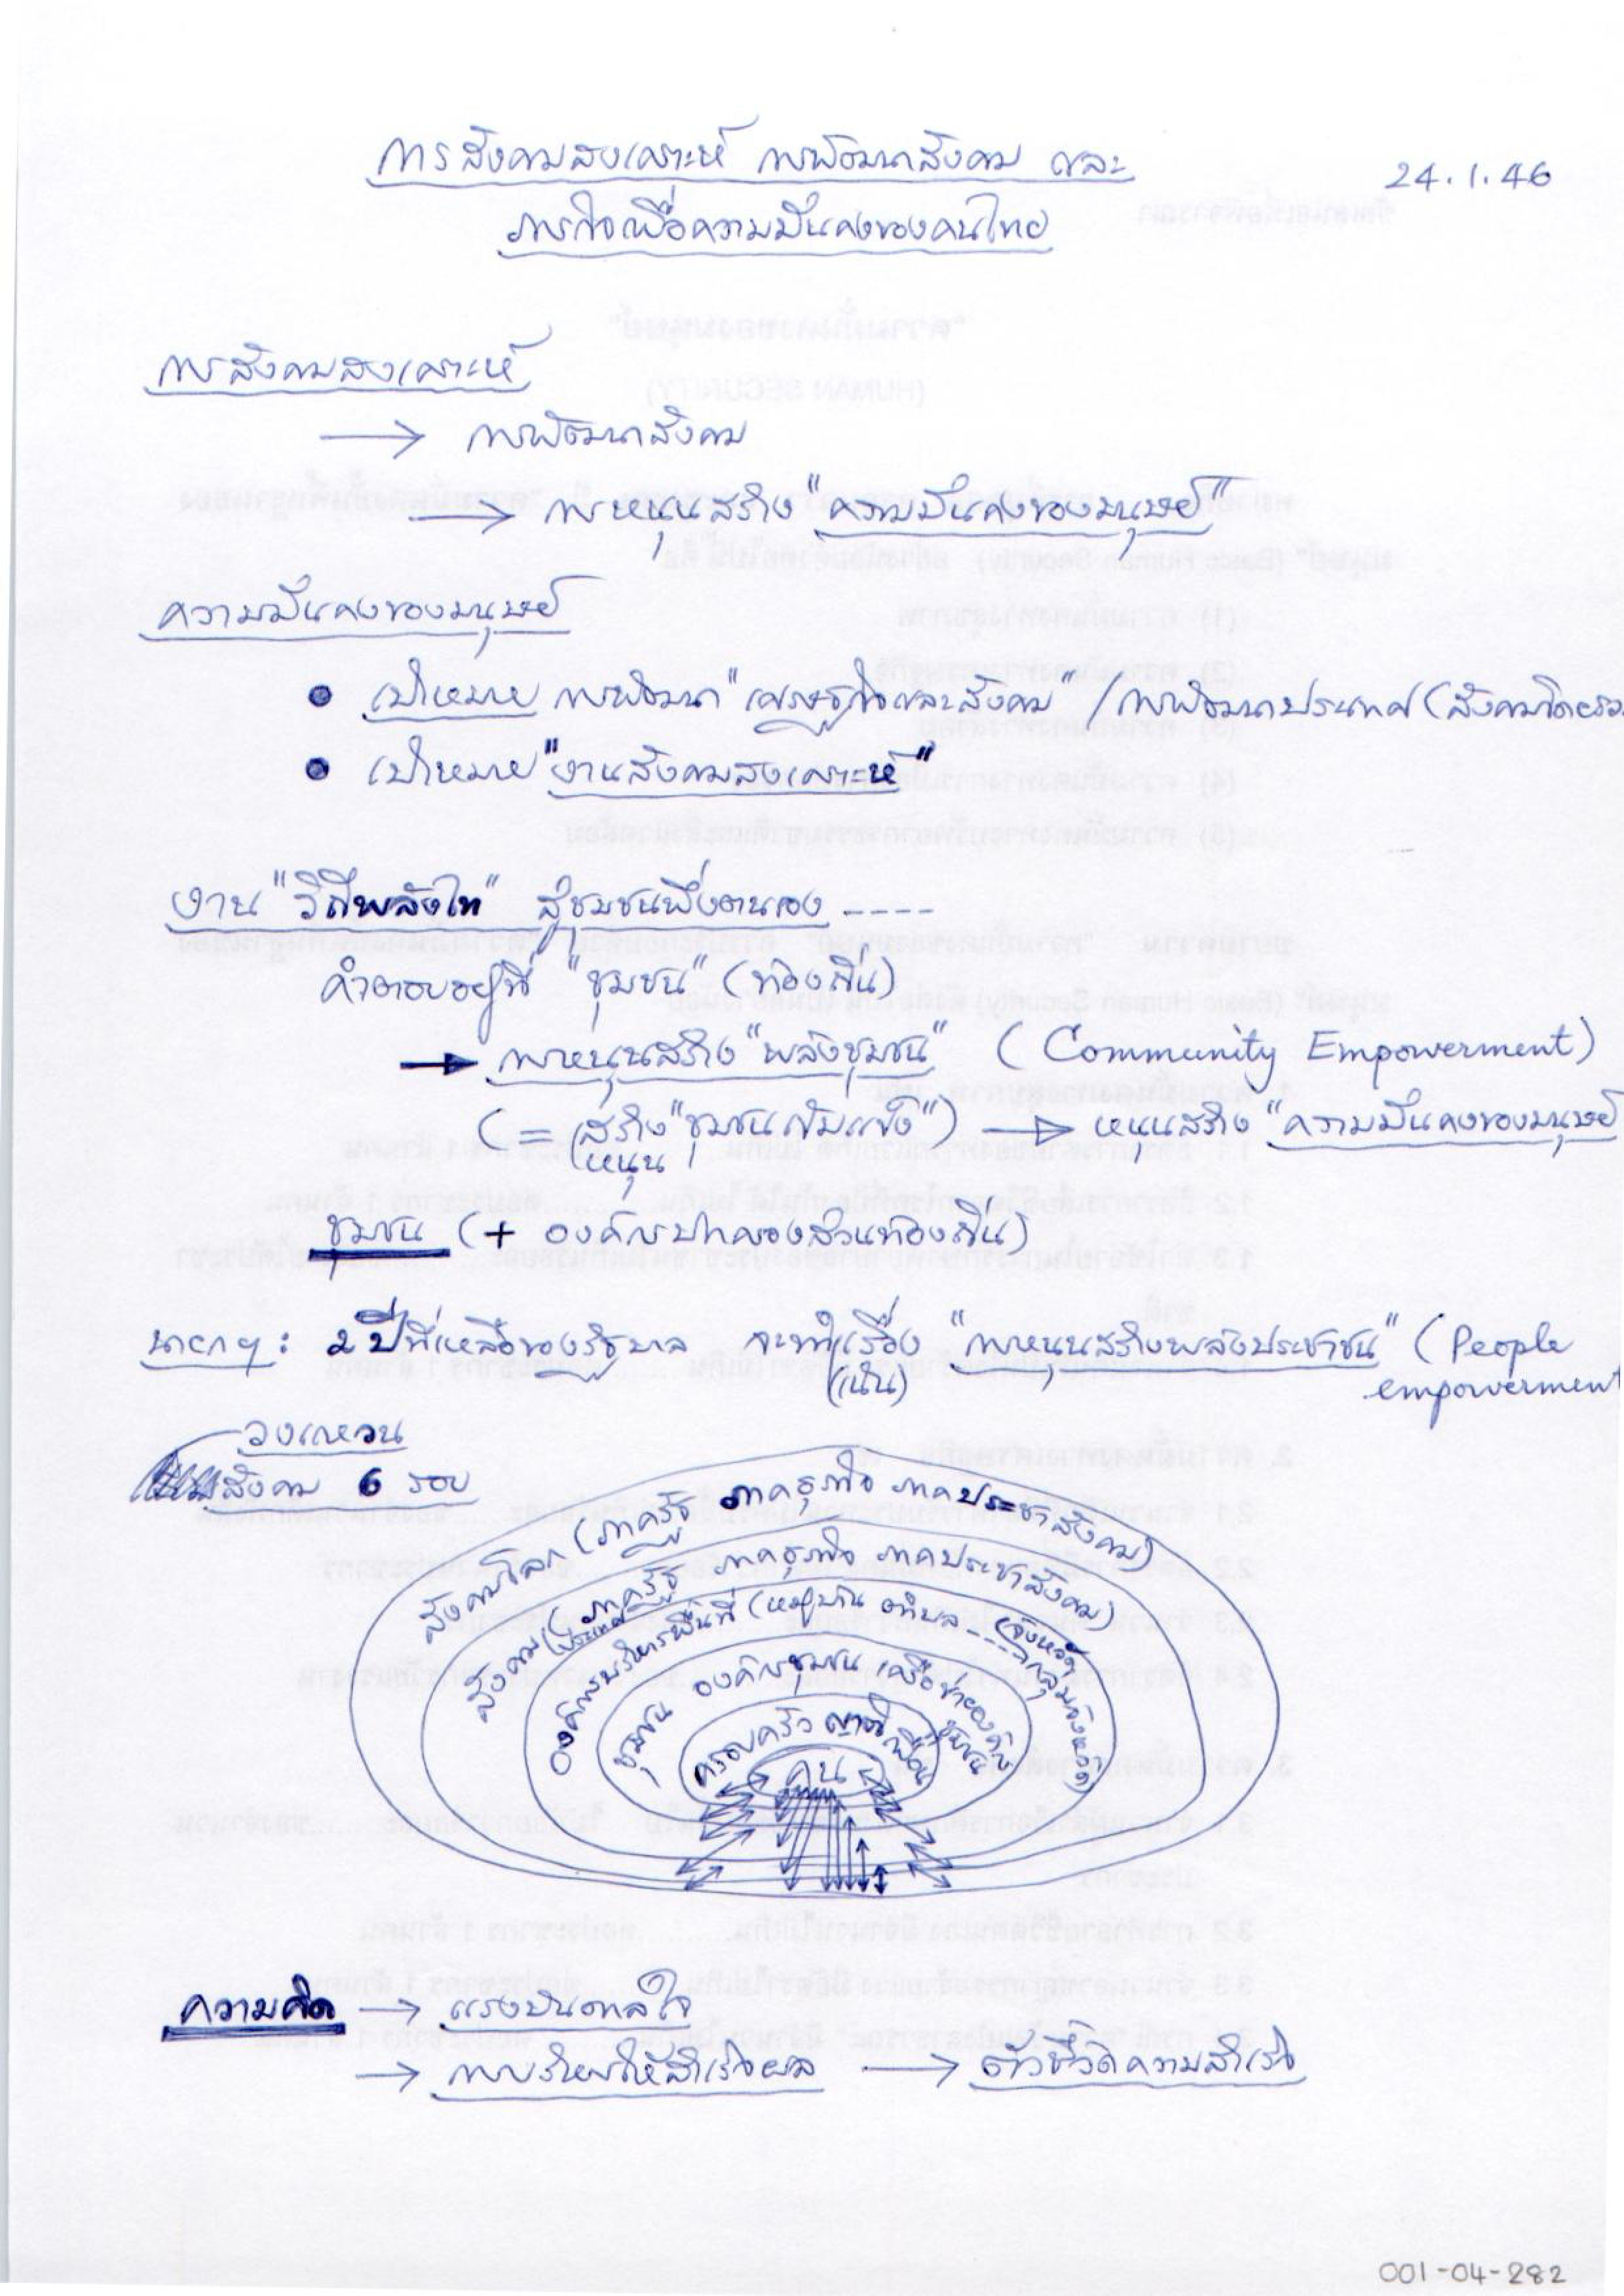 24.1.46
การสังคมสงเคราะห์ การพัฒนาสังคม และ
ภารกิจเพื่อความมั่นคงของคนไทย
การสังคมสงเคราะห์
→ การพัฒนาสังคม
→ การหนุนสร้าง "ความมั่นคงของมนุษย์"
ความมั่นคงของมนุษย์
• เป้าหมาย การพัฒนา "เศรษฐกิจและสังคม" / การพัฒนาประเทศ (สังคมโดยรวม
• เป้าหมาย "งานสังคมสงเคราะห์"
งาน "วิถีพลังไท" สู่ชุมชนพึ่งตนเอง ----
คำตอบอยู่ที่ "ชุมชน" (ท้องถิ่น)
→ การหนุนสร้าง "พลังชุมชน" (Community Empowerment)
(= สร้าง "ชุมชนเข้มแข็ง") → หนุนสร้าง "ความมั่นคงของมนุษย์
(หนุน
ชุมชน (+ องค์กรปกครองส่วนท้องถิ่น)
นายกฯ: 2 ปีที่เหลือของรัฐบาล จะทำเรื่อง "การหนุนสร้างพลังประชาชน" (People
(เน้น) empowerment
วงแหวน
สังคม 6 รอบ
สังคมโลก (ภาครัฐ ภาคธุรกิจ ภาคประชาสังคม)
สังคมประเทศ (ภาครัฐ ภาคธุรกิจ ภาคประชาสังคม)
องค์กรบริหารพื้นที่ (หมู่บ้าน ตำบล ---- จังหวัด กลุ่มจังหวัด)
ชุมชน องค์กรชุมชน เครือข่ายองค์กรชุมชน
ครอบครัว ญาติ เพื่อน
คน
ความคิด → แรงบันดาลใจ
→ การบริหารให้สำเร็จผล → ตัวชี้วัดความสำเร็จ
001-04-282